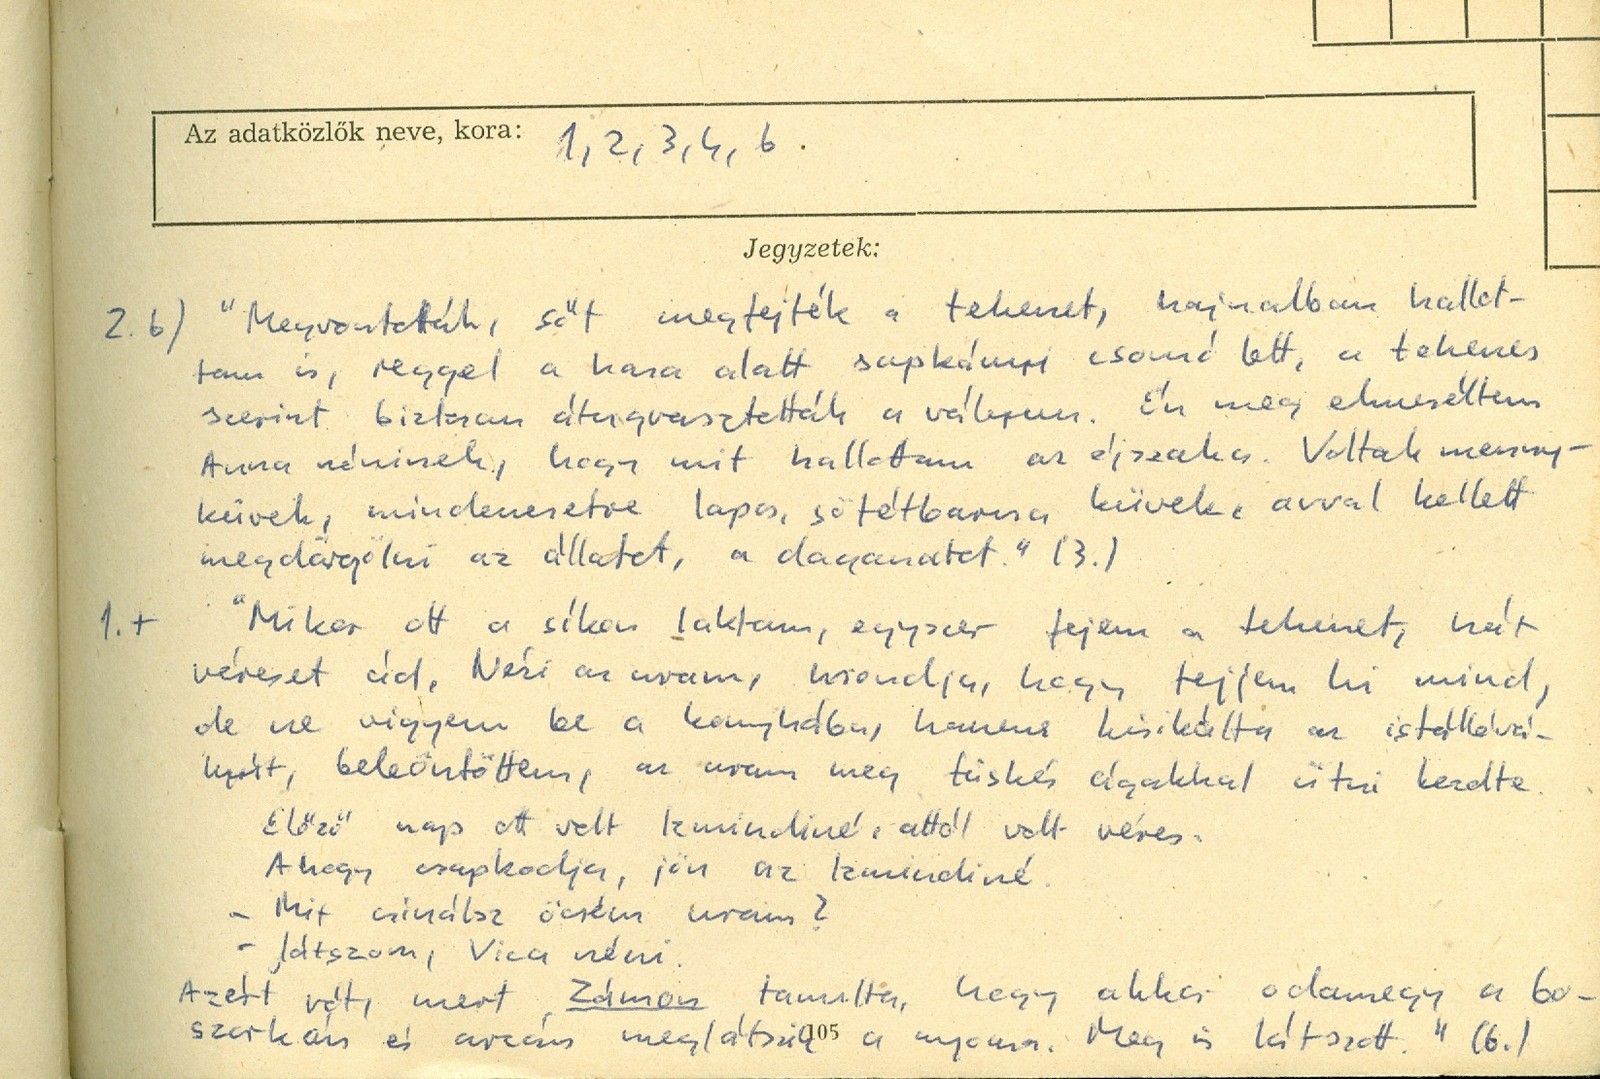 Az adatközlők neve, kora: 1, 2, 3, 4, 6.
Jegyzetek:
2.b) "Megvontatták, sőt megfejték a tehenet, hajnalban hallot-
tam is, reggel a hasa alatt sapkányi csomó lett, a tehenes
szerint biztosan átugrasztották a vályun. Én meg elmeséltem
Anna néninek, hogy mit hallottam az éjszaka. Voltak menny-
küvek, mindenesetre lapos, sötétbarna küvek, avval kellett
megdörgölni az állatot, a daganatot." (3.)
1.+ "Mikor ott a síkon laktam, egyszer fejem a tehenet, hát
véreset ád. Nézi az uram, mondja, hogy fejjem ki mind,
de ne vigyem be a konyhába, hanem kisikálta az istállóvá-
lyút, beleöntöttem, az uram meg tüskés ágakkal ütni kezdte.
Előző nap ott volt Izmindiné, attól volt véres.
Ahogy csapkodja, jön az Izmindiné.
- Mit csinálsz öcsém uram?
- Játszom, Vica néni.
Azért vót, mert Zámon tanulta, hogy akkor odamegy a bo-
szorkán és arcán meglátszik a nyoma. Meg is látszott." (6.)
105